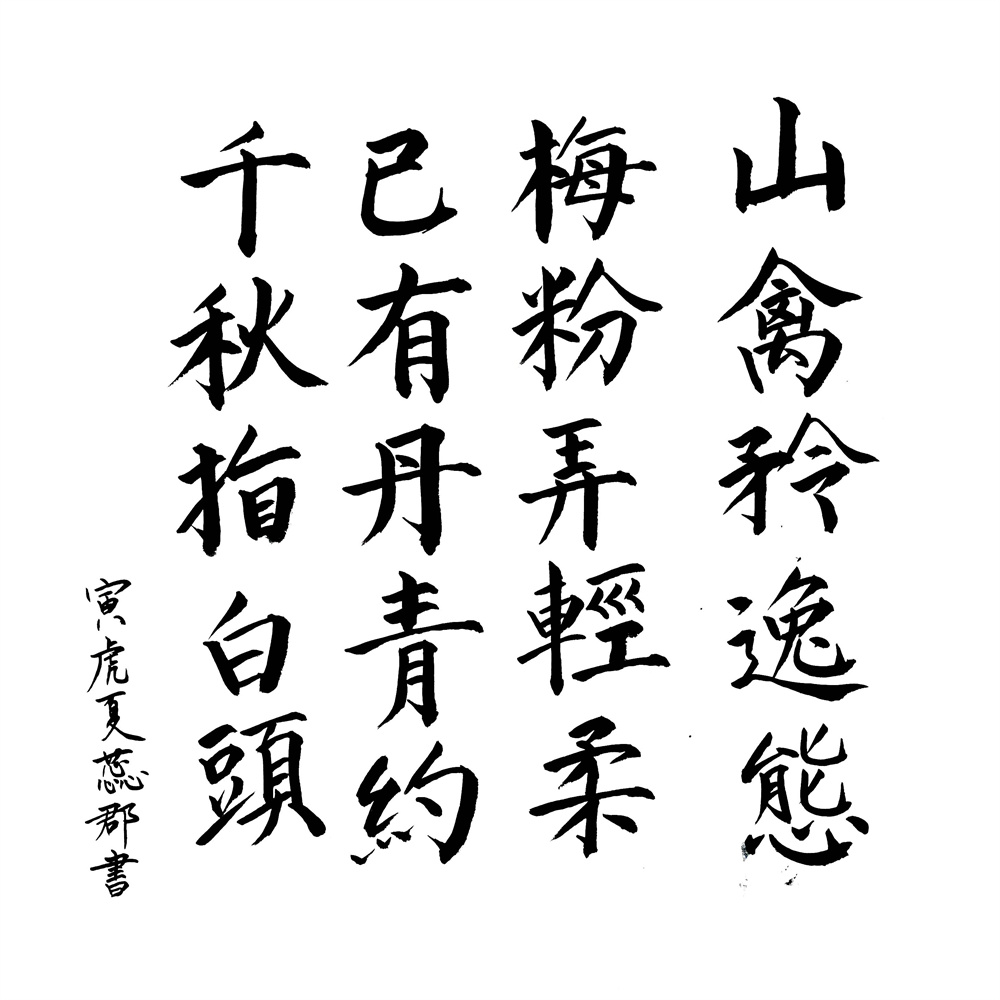 山禽矜逸態
梅粉弄輕柔
已有丹青約
千秋指白頭
寅虎夏蕊郡書